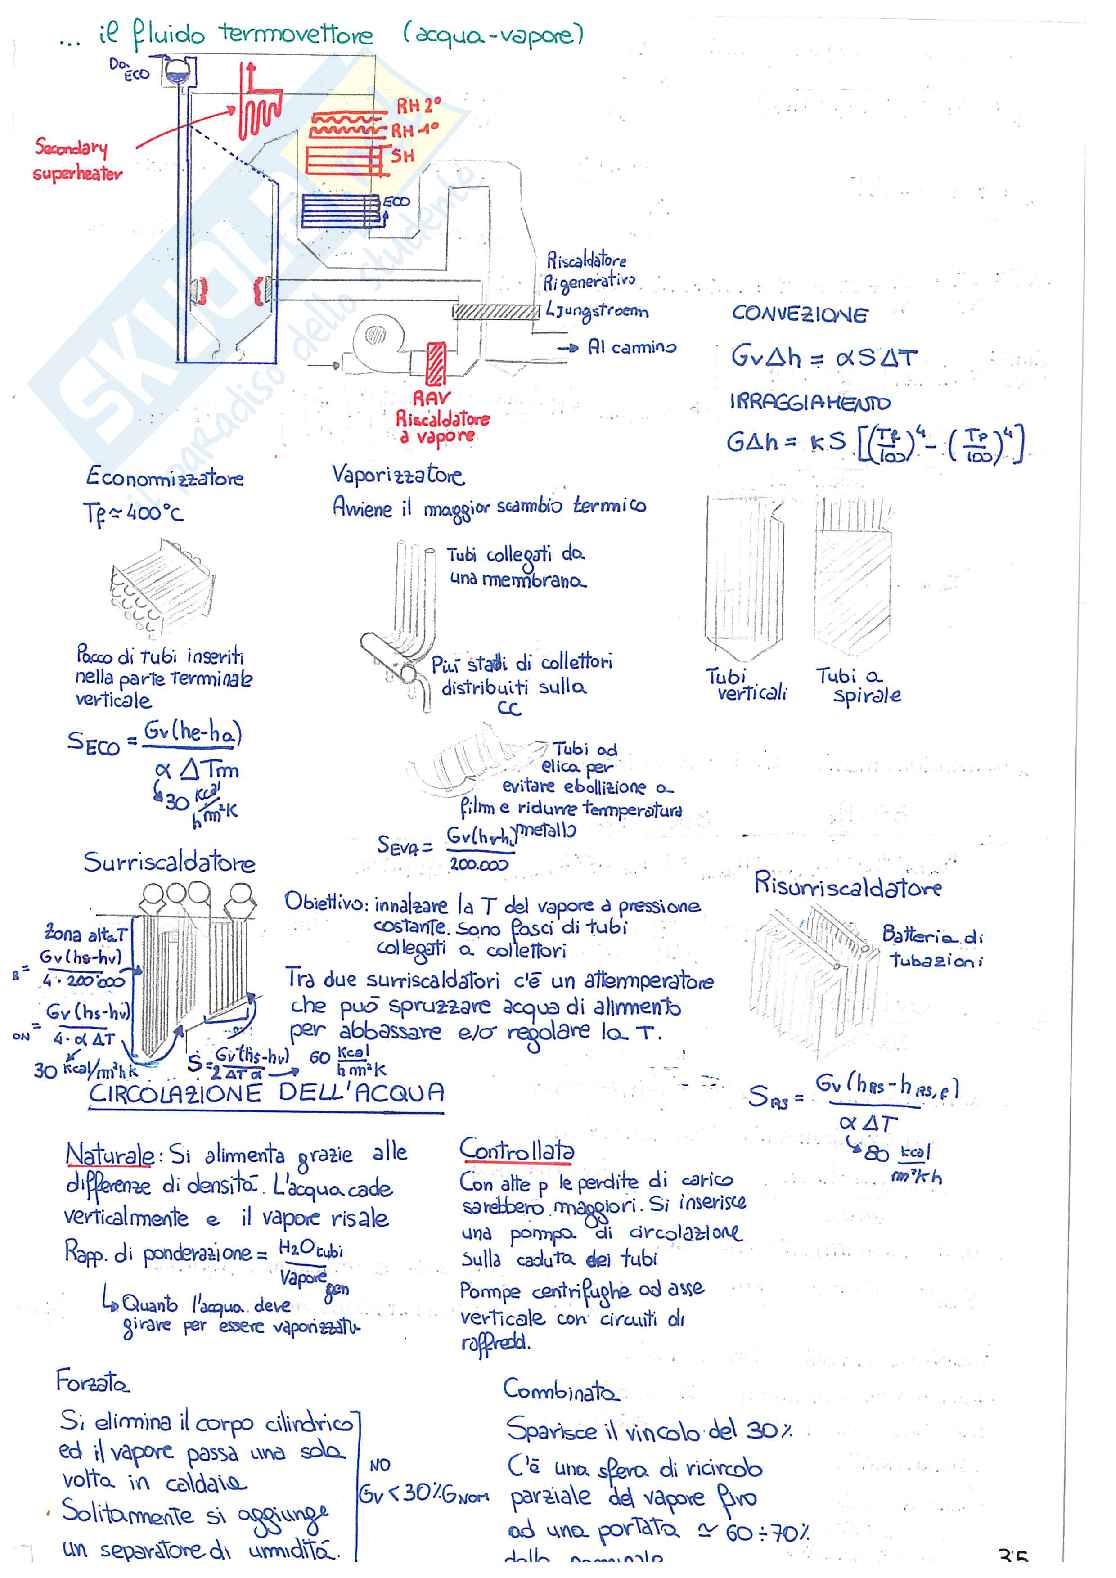 ... il fluido termovettore (acqua-vapore)
Da ECO
Secondary
superheater
RH 2°
RH 1°
SH
ECO
Riscaldatore
Rigenerativo
Ljungstroem
→ Al camino
RAV
Riscaldatore
a vapore
CONVEZIONE
GvΔh = αSΔT
IRRAGGIAMENTO
GΔh = KS [(Tf/100)^4 - (Tp/100)^4]
SKUOLA
il paradiso dello studente
Economizzatore
Tf ≃ 400°C
Pacco di tubi inseriti
nella parte terminale
verticale
S_ECO = Gv(he-ha) / α ΔTm
↳ 30 kcal / h m²K
Vaporizzatore
Avviene il maggior scambio termico
Tubi collegati da
una membrana
Più stadi di collettori
distribuiti sulla
CC
Tubi ad
elica per
evitare ebollizione a
film e ridurre temperatura
metallo
S_EVA = Gv(hv-h) / 200.000
Tubi
verticali
Tubi a
spirale
Surriscaldatore
Zona alta T
= Gv(hs-hv) / 4·200'000
ON = Gv(hs-hv) / 4·αΔT
30 kcal/m²hK
S = Gv(hs-hv) / 2ΔTα → 60 kcal / h m²K
Obiettivo: innalzare la T del vapore a pressione
costante. Sono fasci di tubi
collegati a collettori
Tra due surriscaldatori c'è un attemperatore
che può spruzzare acqua di alimento
per abbassare e/o regolare la T.
Risurriscaldatore
Batteria di
tubazioni
S_RS = Gv(hRS-hRS,f) / αΔT
↳ 80 kcal / m²Kh
CIRCOLAZIONE DELL'ACQUA
Naturale: Si alimenta grazie alle
differenze di densità. L'acqua cade
verticalmente e il vapore risale
Rapp. di ponderazione = H2O tubi / Vapore gen
↳ Quanto l'acqua deve
girare per essere vaporizzata
Controllata
Con alte p le perdite di carico
sarebbero maggiori. Si inserisce
una pompa di circolazione
sulla caduta dei tubi
Pompe centrifughe ad asse
verticale con circuiti di
raffredd.
Forzata
Si elimina il corpo cilindrico
ed il vapore passa una sola
volta in caldaia
Solitamente si aggiunge
un separatore di umidità.
NO
Gv < 30% G NOM
Combinata
Sparisce il vincolo del 30%
C'è una sfera di ricircolo
parziale del vapore fino
ad una portata ≃ 60÷70%
della nominale
35